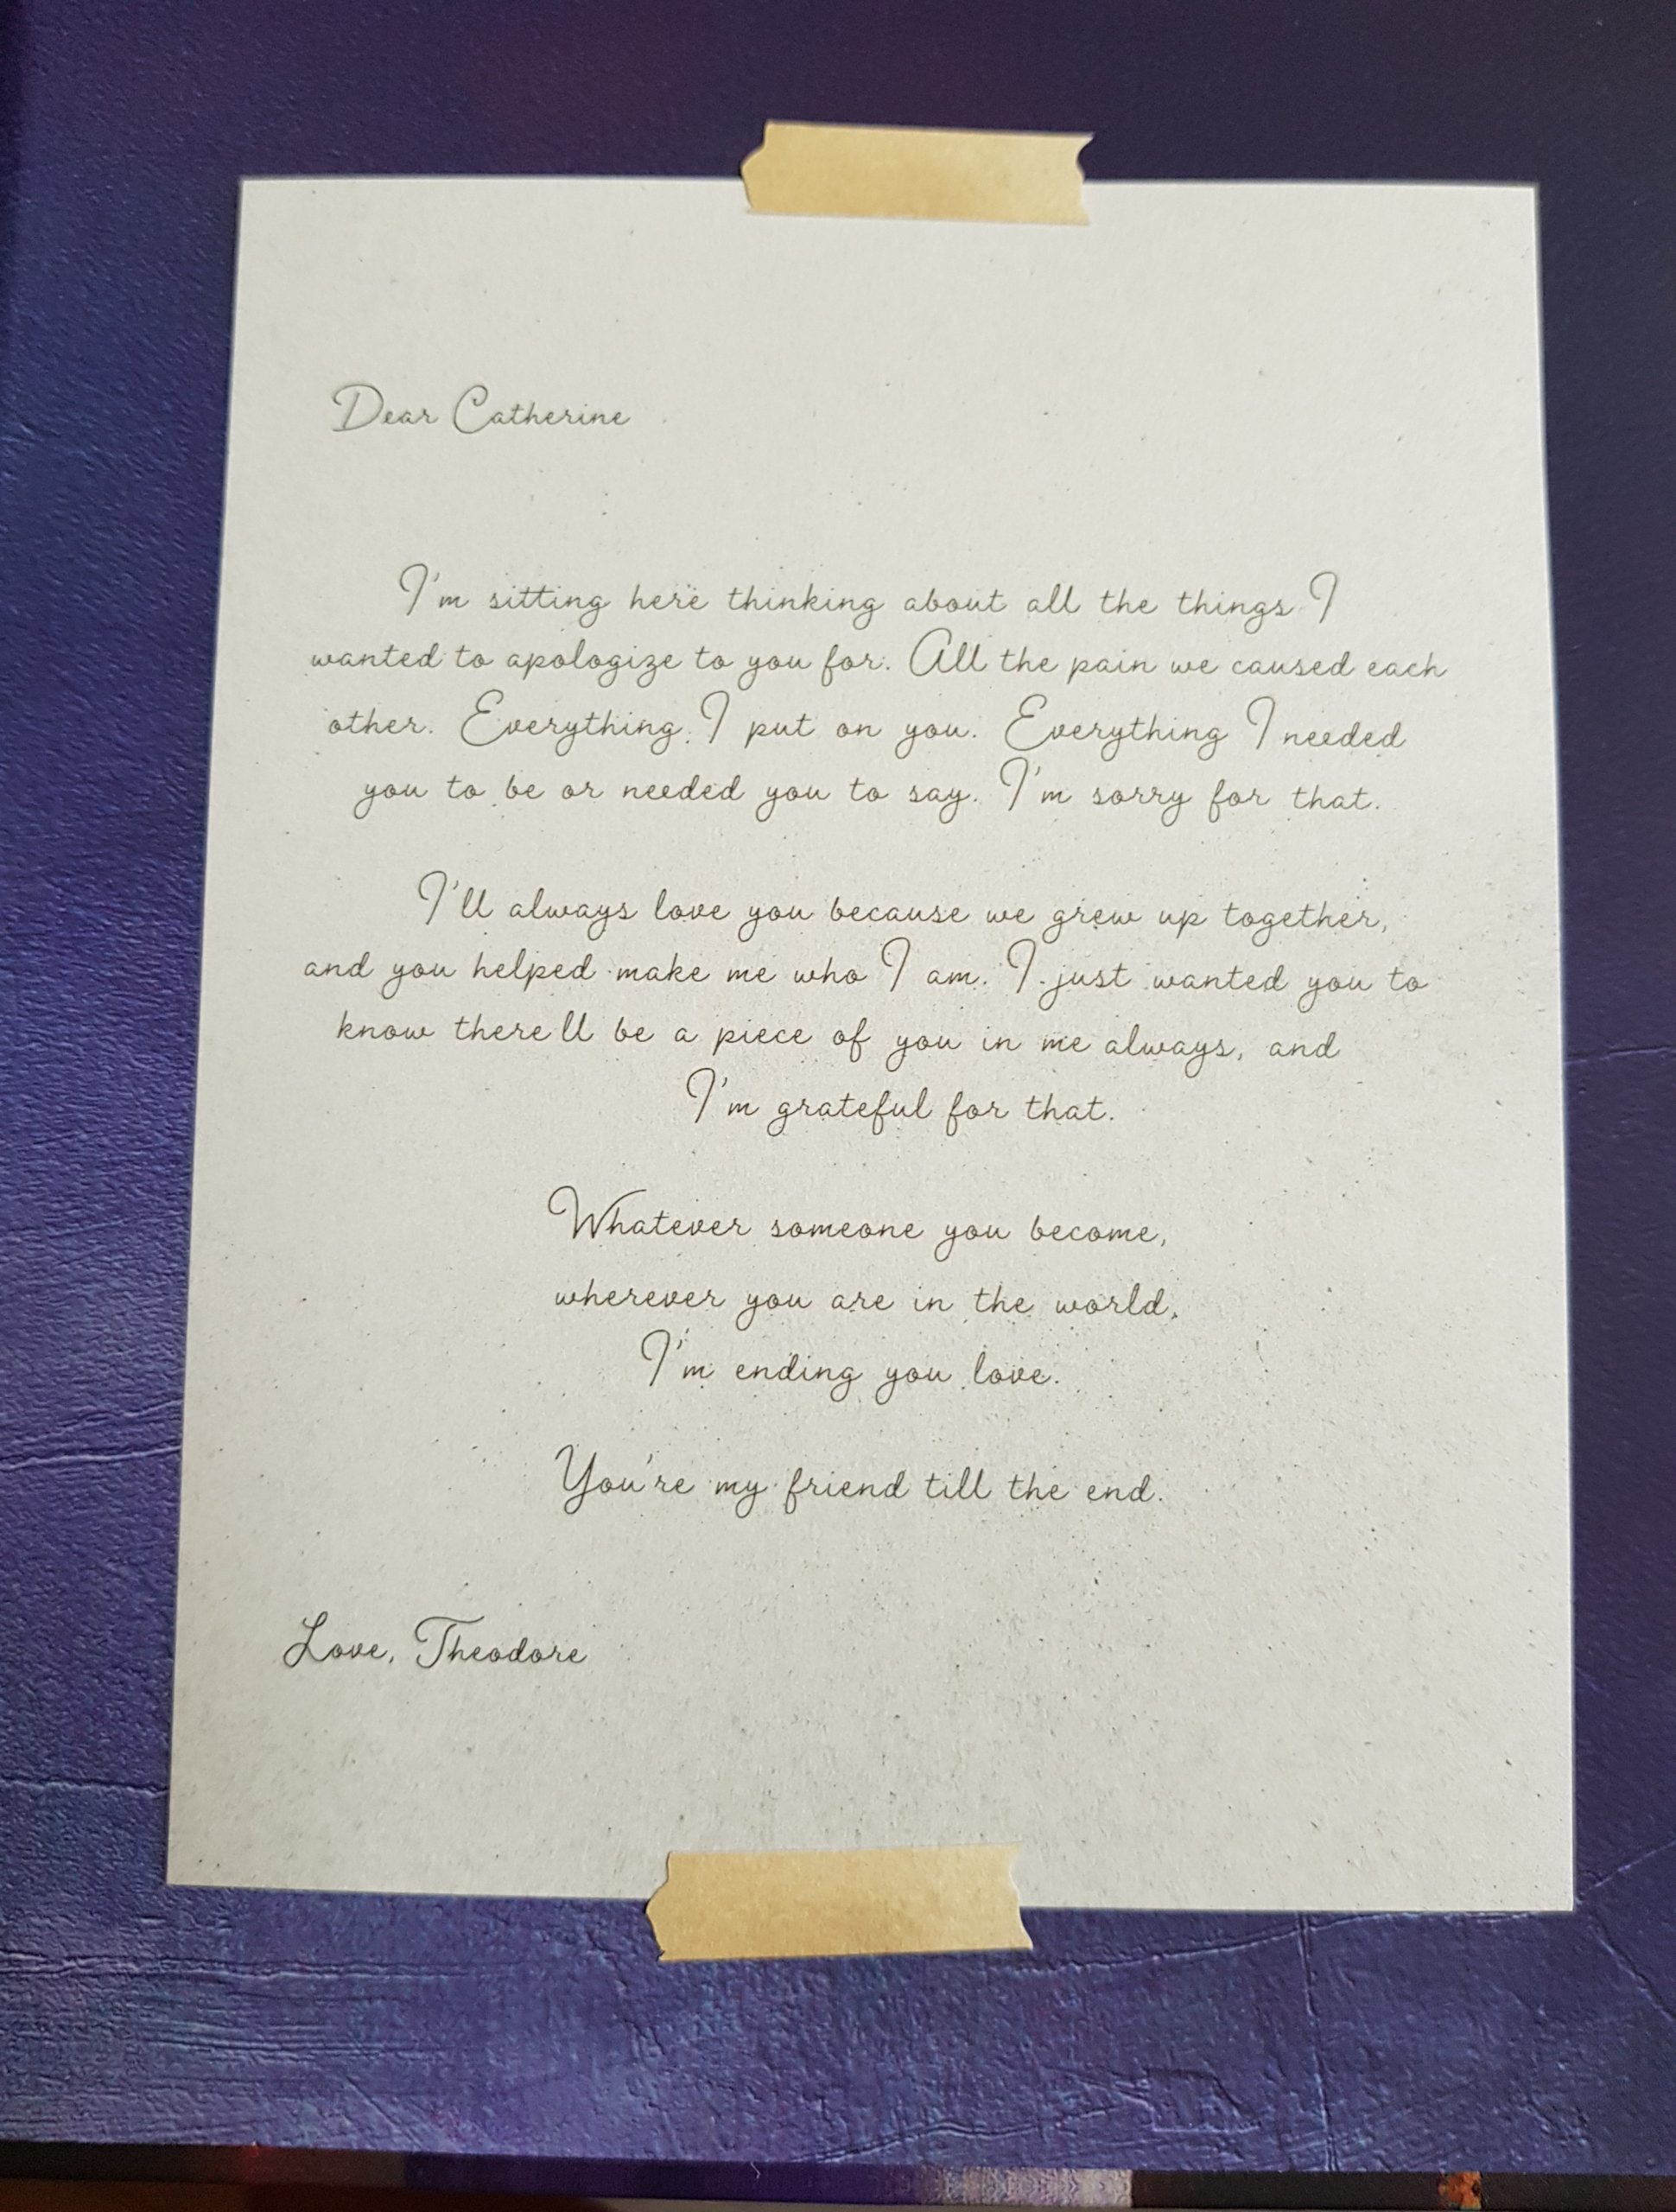 Dear Catherine
I'm sitting here thinking about all the things I
wanted to apologize to you for. All the pain we caused each
other. Everything I put on you. Everything I needed
you to be or needed you to say. I'm sorry for that.
I'll always love you because we grew up together,
and you helped make me who I am. I just wanted you to
know there'll be a piece of you in me always, and
I'm grateful for that.
Whatever someone you become,
wherever you are in the world,
I'm ending you love.
You're my friend till the end.
Love, Theodore